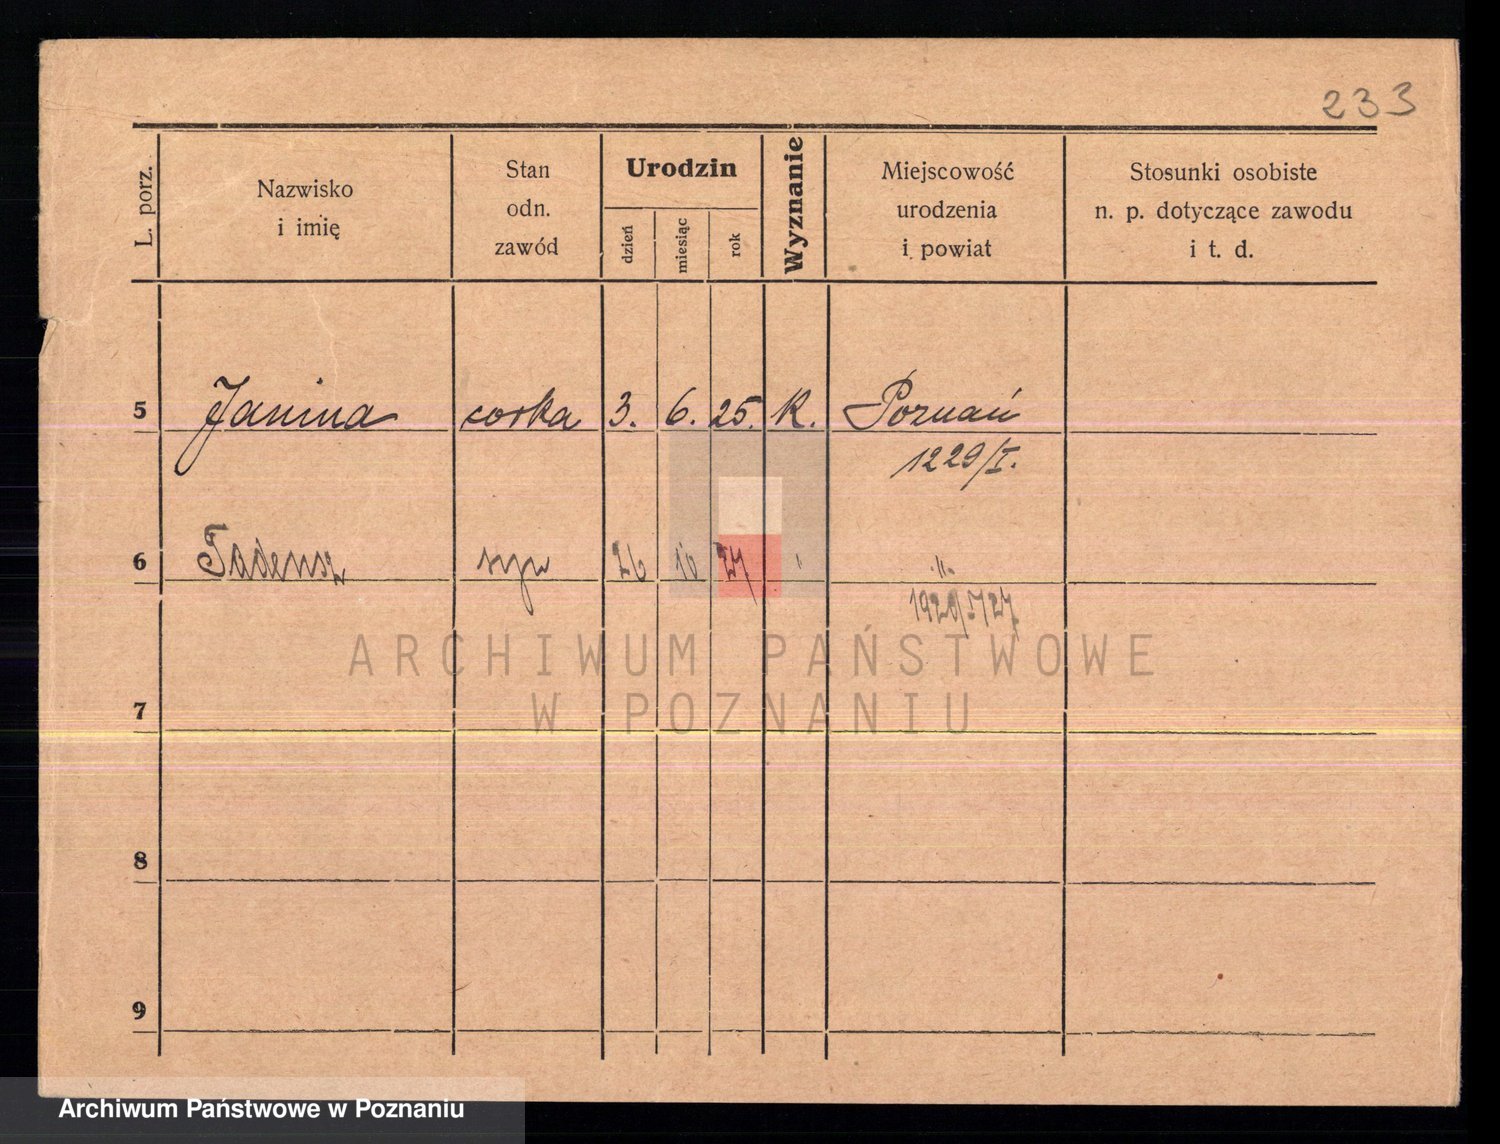 233
L. porz.
Nazwisko
i imię
Stan
odn.
zawód
Urodzin
dzień
miesiąc
rok
Wyznanie
Miejscowość
urodzenia
i powiat
Stosunki osobiste
n. p. dotyczące zawodu
i t. d.
5 Janina corka 3. 6. 25. K. Poznań
1229/I.
6 Tadeusz syn 26 10 27 " -"-
ARCHIWUM PAŃSTWOWE
W POZNANIU
7
8
9
Archiwum Państwowe w Poznaniu